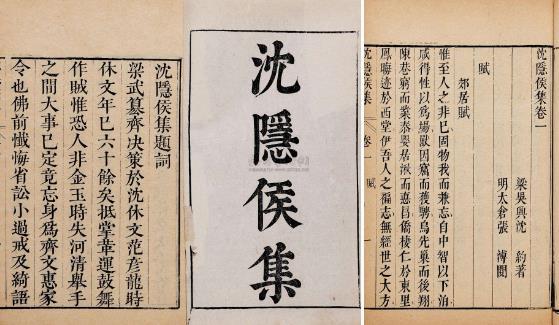 沈隱侯集題詞
梁武篡齊決策於沈休文范彥龍時
休文年已六十餘矣抵掌革運鼓舞
作賊惟恐人非金玉時失河清舉手
之間大事已定竟忘身為齊文惠家
令也佛前懺悔省訟小過戒及綺語
沈隱侯集
沈隱侯集卷一
梁吳興沈 約著
明太倉張 溥閱
賦
郊居賦
惟至人之非已固物我而兼忘自中智以下洎
咸得性以爲塲獸因窟而獲騁鳥先巢而後翔
陳巷窮而業泰嬰居湫而德昌僑棲仁於東里
鳳晦迹於西堂伊吾人之褊志無經世之大方
沈隱侯集 卷一 賦